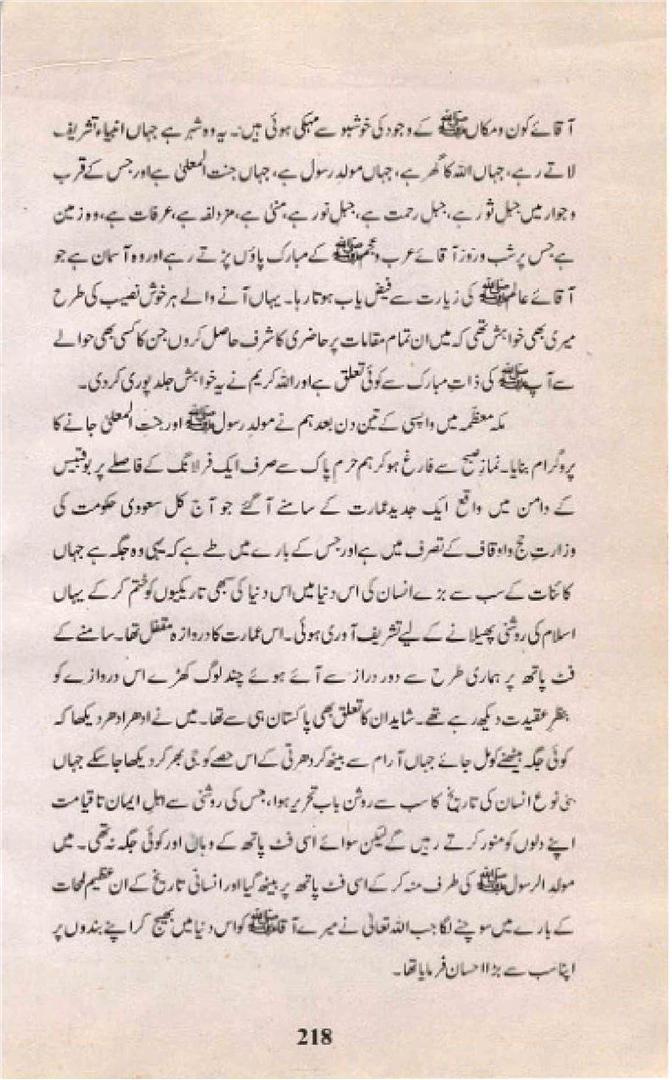 آقائے کون و مکاں ﷺ کے وجود کی خوشبو سے مہکی ہوئی ہیں۔ یہ وہ شہر ہے جہاں انبیاء تشریف
لاتے رہے، جہاں اللہ کا گھر ہے، جہاں مولد رسول ہے، جہاں جنت المعلیٰ ہے اور جس کے قرب
و جوار میں جبل ثور ہے، جبل رحمت ہے، جبل نور ہے، منیٰ ہے، مزدلفہ ہے، عرفات ہے، وہ زمین
ہے جس پر شب و روز آقائے عرب و عجم ﷺ کے مبارک پاؤں پڑتے رہے اور وہ آسمان ہے جو
آقائے عالم ﷺ کی زیارت سے فیض یاب ہوتا رہا۔ یہاں آنے والے ہر خوش نصیب کی طرح
میری بھی خواہش تھی کہ میں ان تمام مقامات پر حاضری کا شرف حاصل کروں جن کا کسی بھی حوالے
سے آپ ﷺ کی ذاتِ مبارک سے کوئی تعلق ہے اور اللہ کریم نے یہ خواہش جلد پوری کر دی۔
مکہ معظمہ میں واپسی کے تین دن بعد ہم نے مولد رسول ﷺ اور جنت المعلیٰ جانے کا
پروگرام بنایا۔ نمازِ صبح سے فارغ ہو کر ہم حرم پاک سے صرف ایک فرلانگ کے فاصلے پر بوقبیس
کے دامن میں واقع ایک جدید عمارت کے سامنے آ گئے جو آج کل سعودی حکومت کی
وزارتِ حج و اوقاف کے تصرف میں ہے اور جس کے بارے میں طے ہے کہ یہی وہ جگہ ہے جہاں
کائنات کے سب سے بڑے انسان کی اس دنیا میں اس دنیا کی سبھی تاریکیوں کو ختم کر کے یہاں
اسلام کی روشنی پھیلانے کے لیے تشریف آوری ہوئی۔ اس عمارت کا دروازہ مقفل تھا۔ سامنے کے
فٹ پاتھ پر ہماری طرح سے دور دراز سے آئے ہوئے چند لوگ کھڑے اس دروازے کو
بنظرِ عقیدت دیکھ رہے تھے۔ شاید ان کا تعلق بھی پاکستان ہی سے تھا۔ میں نے ادھر ادھر دیکھا کہ
کوئی جگہ بیٹھنے کو مل جائے جہاں آرام سے بیٹھ کر دھرتی کے اس حصے کو جی بھر کر دیکھا جا سکے جہاں
بنی نوع انسان کی تاریخ کا سب سے روشن باب تحریر ہوا، جس کی روشنی سے اہلِ ایمان تا قیامت
اپنے دلوں کو منور کرتے رہیں گے لیکن سوائے اسی فٹ پاتھ کے وہاں اور کوئی جگہ نہ تھی۔ میں
مولد الرسول ﷺ کی طرف منہ کر کے اسی فٹ پاتھ پر بیٹھ گیا اور انسانی تاریخ کے ان عظیم لمحات
کے بارے میں سوچنے لگا جب اللہ تعالیٰ نے میرے آقا ﷺ کو اس دنیا میں بھیج کر اپنے بندوں پر
اپنا سب سے بڑا احسان فرمایا تھا۔
218